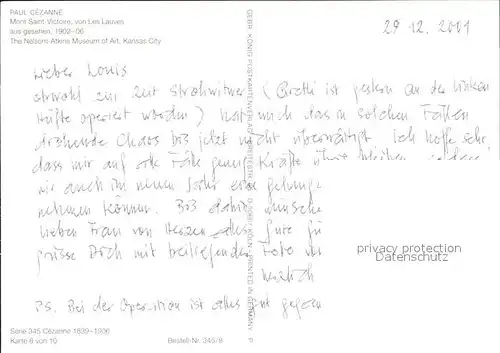 PAUL CÉZANNE
Mont Saint-Victoire, von Les Lauves
aus gesehen, 1902–06
The Nelson-Atkins Museum of Art, Kansas City
29 12. 2001
Lieber Louis
obwohl zur Zeit Strohwitwer (Grethi ist gestern an der linken
Hüfte operiert worden) hat mich das in solchen Fällen
drohende Chaos bis jetzt nicht überwältigt. Ich hoffe sehr
dass mir auf alle Fälle genug Kräfte übrig bleiben
wir auch im neuen Jahr eine
nehmen können. Bis dahin wünsche
lieben Frau von Herzen alles Gute
grüsse Dich mit
herzlich
PS. Bei der Operation ist alles gut gegangen
privacy protection
Datenschutz
Serie 345 Cézanne 1839–1906
Karte 8 von 10
Bestell-Nr. 345/8
GEBR. KÖNIG POSTKARTENVERLAG
KÖLN
PRINTED IN GERMANY